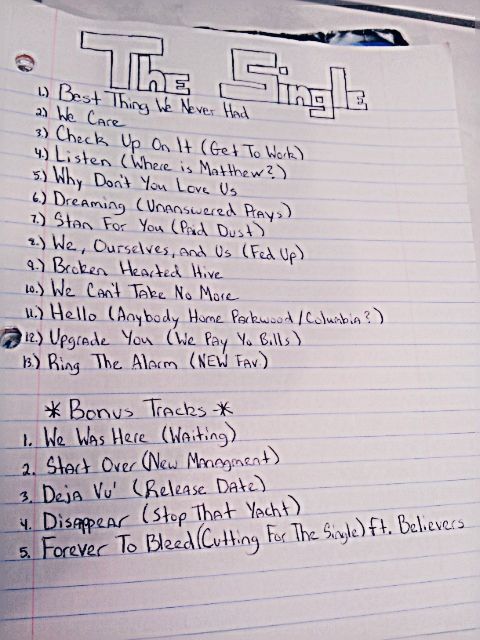 The Single
1.) Best Thing We Never Had
2.) We Care
3.) Check Up On It (Get To Work)
4.) Listen (Where is Matthew?)
5.) Why Don't You Love Us
6.) Dreaming (Unanswered Prays)
7.) Stan For You (Paid Dust)
8.) We, Ourselves, and Us (Fed Up)
9.) Broken Hearted Hive
10.) We Can't Take No More
11.) Hello (Anybody Home Parkwood/Columbia?)
12.) Upgrade You (We Pay Yo Bills)
13.) Ring The Alarm (NEW Fav.)
* Bonus Tracks *
1. We Was Here (Waiting)
2. Start Over (New Managment)
3. Deja Vu' (Release Date)
4. Disappear (Stop That Yacht)
5. Forever To Bleed (Cutting For The Single) ft. Believers